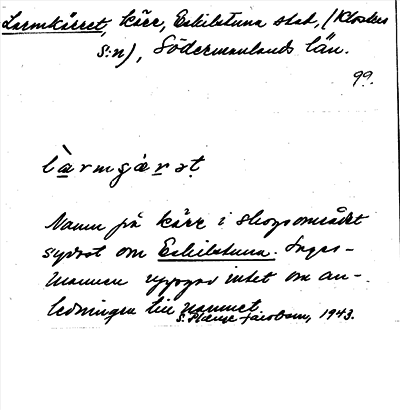 Larmkärret, kärr, Eskilstuna stad, (Klosters
s:n), Södermanlands län.
99.
làrmɡæ̀rət
Namn på kärr i skogsområdet
sydost om Eskilstuna. Sages-
mannen uppgav intet om an-
ledningen till namnet.
S. Jacobsson, 1943.